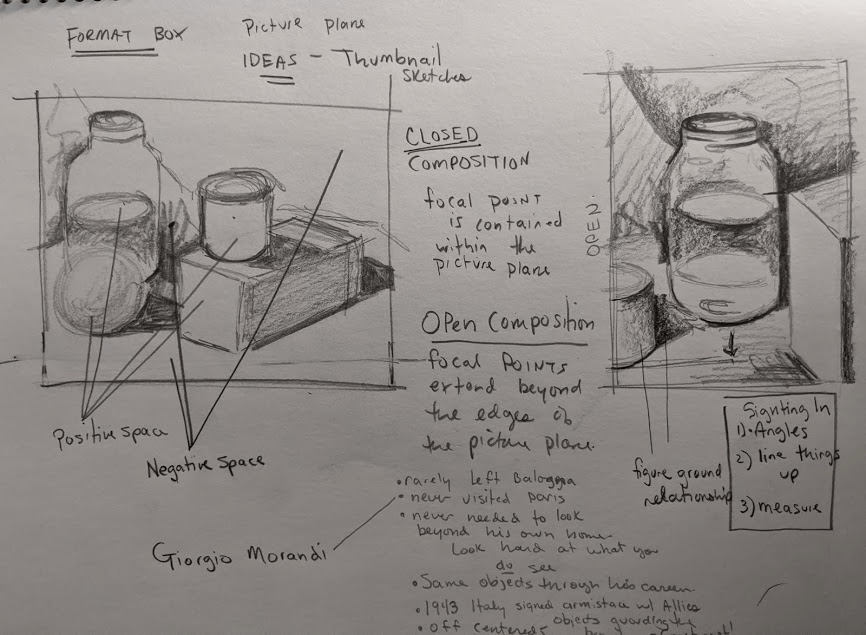 FORMAT BOX
Picture plane
IDEAS - Thumbnail
Sketches
CLOSED
COMPOSITION
focal POINT
is contained
within the
picture plane
OPEN.
Open Composition
focal POINTS
extend beyond
the edges of
the picture plane.
Positive space
Negative Space
figure ground
relationship
Signting In
1). Angles
2) line things
up
3) measure
Giorgio Morandi
• rarely left Balogga
• never visited paris
• never needed to look
beyond his own home
Look hard at what you
do see
• Same objects through his career.
• 1943 Italy signed armistace w/ Allies
• off centered objects guarding the